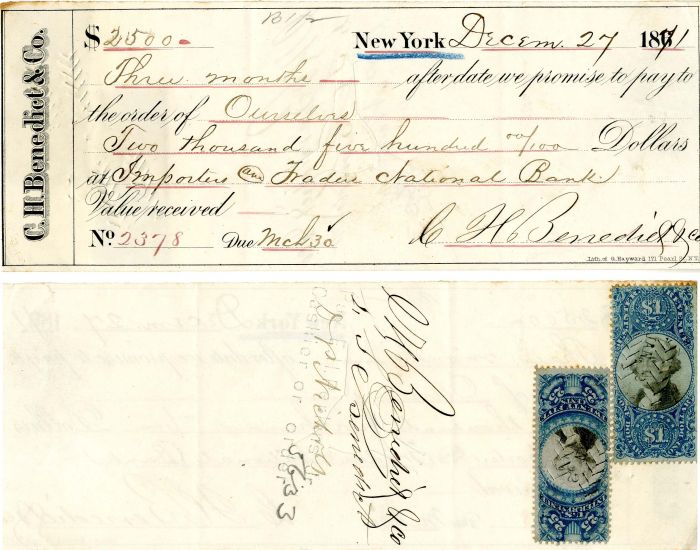 B1/2
$ 2500 New York Decem. 27 1871
Three months after date we promise to pay to
the order of Ourselves
Two thousand five hundred 00/100 Dollars
at Importers and Traders National Bank
Value received
No. 2378 Due Mch 30 C H Benedict & Co
Lith. of G. Hayward 171 Pearl St. N.Y.
C. H. Benedict & Co.
C H Benedict & Co
Cashier or order
5633
$1
$1
25
25